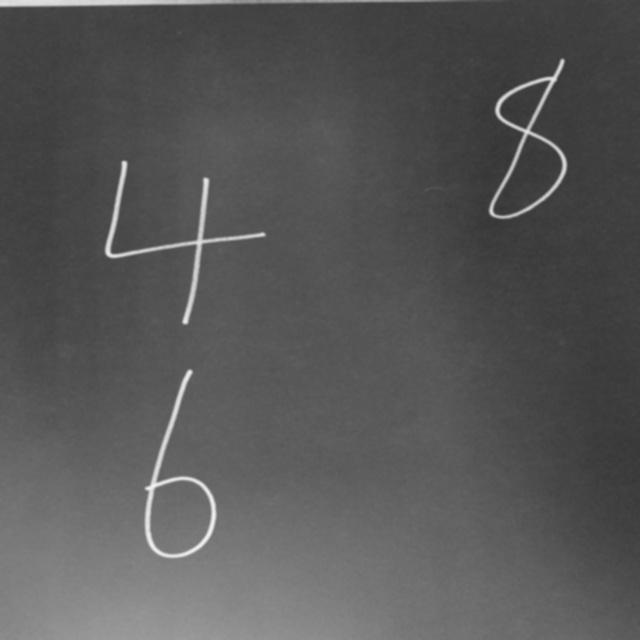 8
4
6